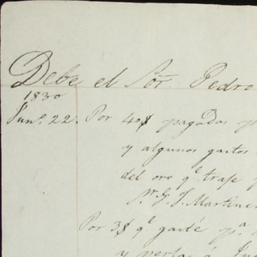 Debe el Sor. Pedro
1830
Jun.o 22. Por 40$ pagados p
y algunos gastos
del oro q.e traje p
Nr. G. J. Martinez
Por 3$ q.e gasté p.a
y perla á